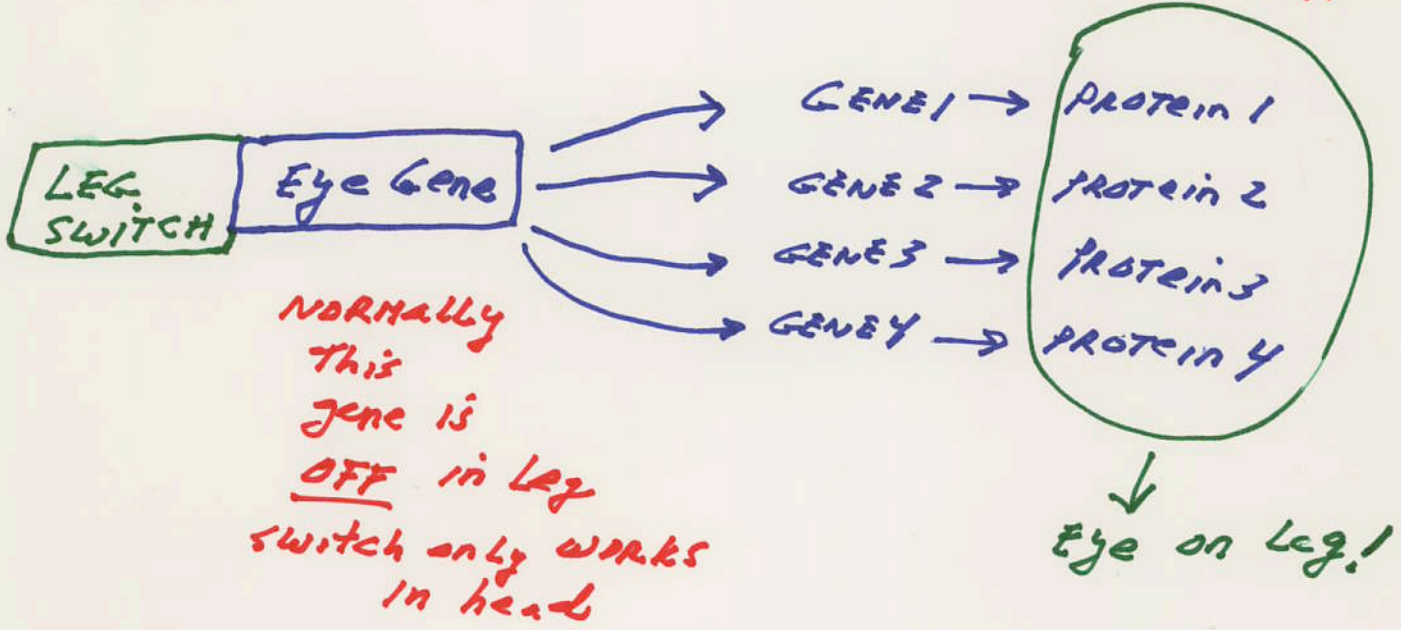 GENE1 → PROTein 1
LEG SWITCH
Eye Gene
GENE 2 → PROTein 2
GENE 3 → PROTein 3
GENE 4 → PROTein 4
NORMally
This
gene is
OFF in Leg
switch only works
in head
Eye on Leg!